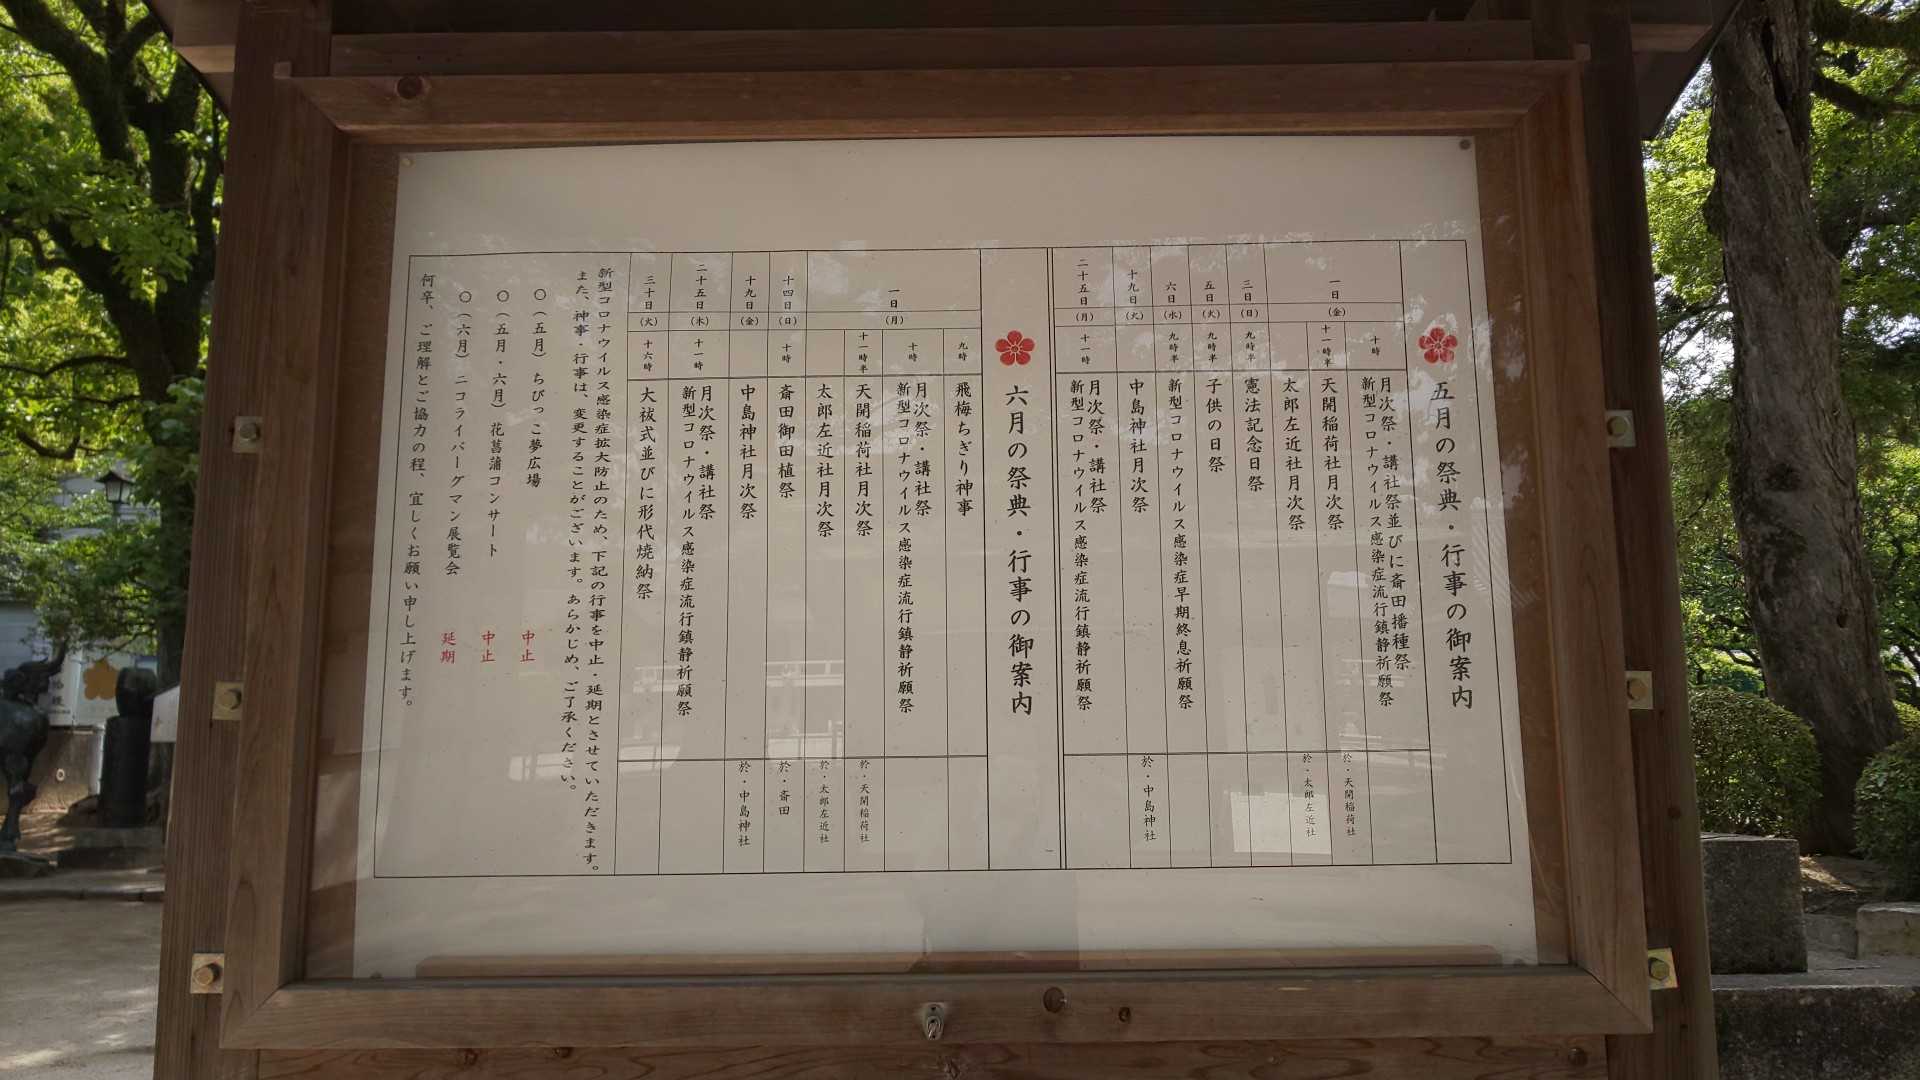 五月の祭典・行事の御案内
一日
(金)
十時
月次祭・講社祭並びに斎田播種祭
新型コロナウイルス感染症流行鎮静祈願祭
十一時半
天開稲荷社月次祭
於・天開稲荷社
太郎左近社月次祭
於・太郎左近社
三日
(日)
九時半
憲法記念日祭
五日
(火)
九時半
子供の日祭
六日
(水)
九時半
新型コロナウイルス感染症早期終息祈願祭
十九日
(火)
中島神社月次祭
於・中島神社
二十五日
(月)
十一時
月次祭・講社祭
新型コロナウイルス感染症流行鎮静祈願祭
六月の祭典・行事の御案内
一日
(月)
九時
飛梅ちぎり神事
十時
月次祭・講社祭
新型コロナウイルス感染症流行鎮静祈願祭
十一時半
天開稲荷社月次祭
於・天開稲荷社
太郎左近社月次祭
於・太郎左近社
十四日
(日)
十時
斎田御田植祭
於・斎田
十九日
(金)
中島神社月次祭
於・中島神社
二十五日
(木)
十一時
月次祭・講社祭
新型コロナウイルス感染症流行鎮静祈願祭
三十日
(火)
十六時
大祓式並びに形代焼納祭
新型コロナウイルス感染症拡大防止のため、下記の行事を中止・延期とさせていただきます。
また、神事・行事は、変更することがございます。あらかじめ、ご了承ください。
〇(五月) ちびっこ夢広場 中止
〇(五月・六月) 花菖蒲コンサート 中止
〇(六月) ニコライバーグマン展覧会 延期
何卒、ご理解とご協力の程、宜しくお願い申し上げます。